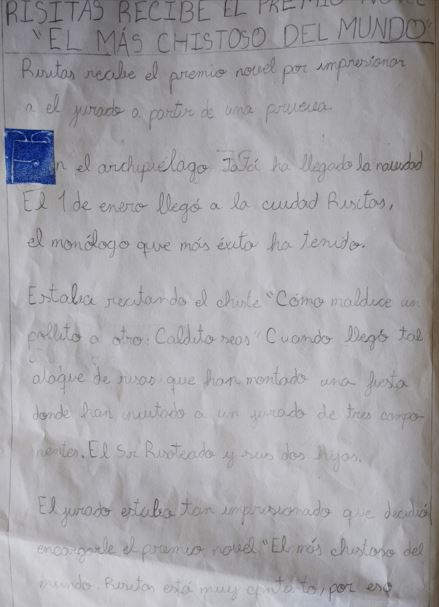 RISITAS RECIBE EL PREMIO
"EL MÁS CHISTOSO DEL MUNDO"
Risitas recibe el premio novel por impresionar
a el jurado a partir de una proeza.
En el archipiélago JaJá ha llegado la navidad
El 1 de enero llegó a la ciudad Risitas,
el monólogo que más éxito ha tenido.
Estaba recitando el chiste "Cómo maldice un
pollito a otro: Caldito seas" Cuando llegó tal
ataque de risas que han montado una fiesta
donde han invitado a un jurado de tres compo-
nentes. El Sir Risoteado y sus dos hijos.
El jurado estaba tan impresionado que decidió
encargarle el premio novel "El más chistoso del
mundo. Risitas está muy contento, por eso